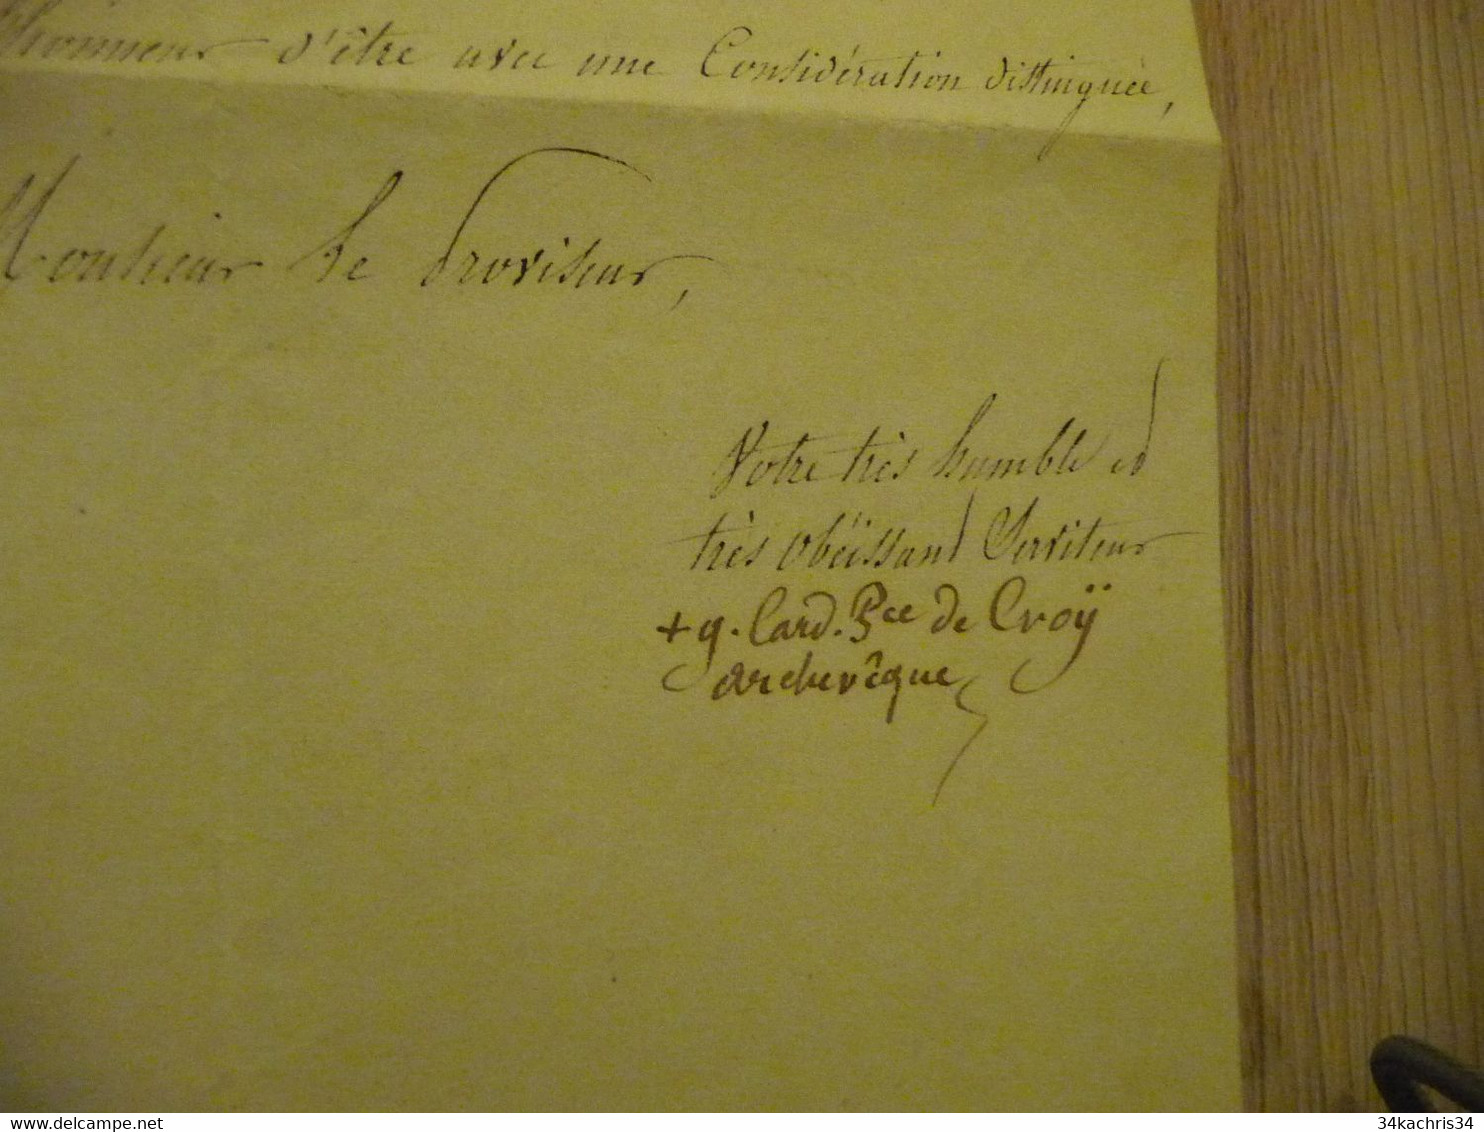 l'honneur d'être avec une Considération distinguée,
Monsieur le Proviseur,
Votre très humble et
très obéissant Serviteur
+ g. Card. Pce de Croÿ
archevêque
delcampe.net
34kachris34